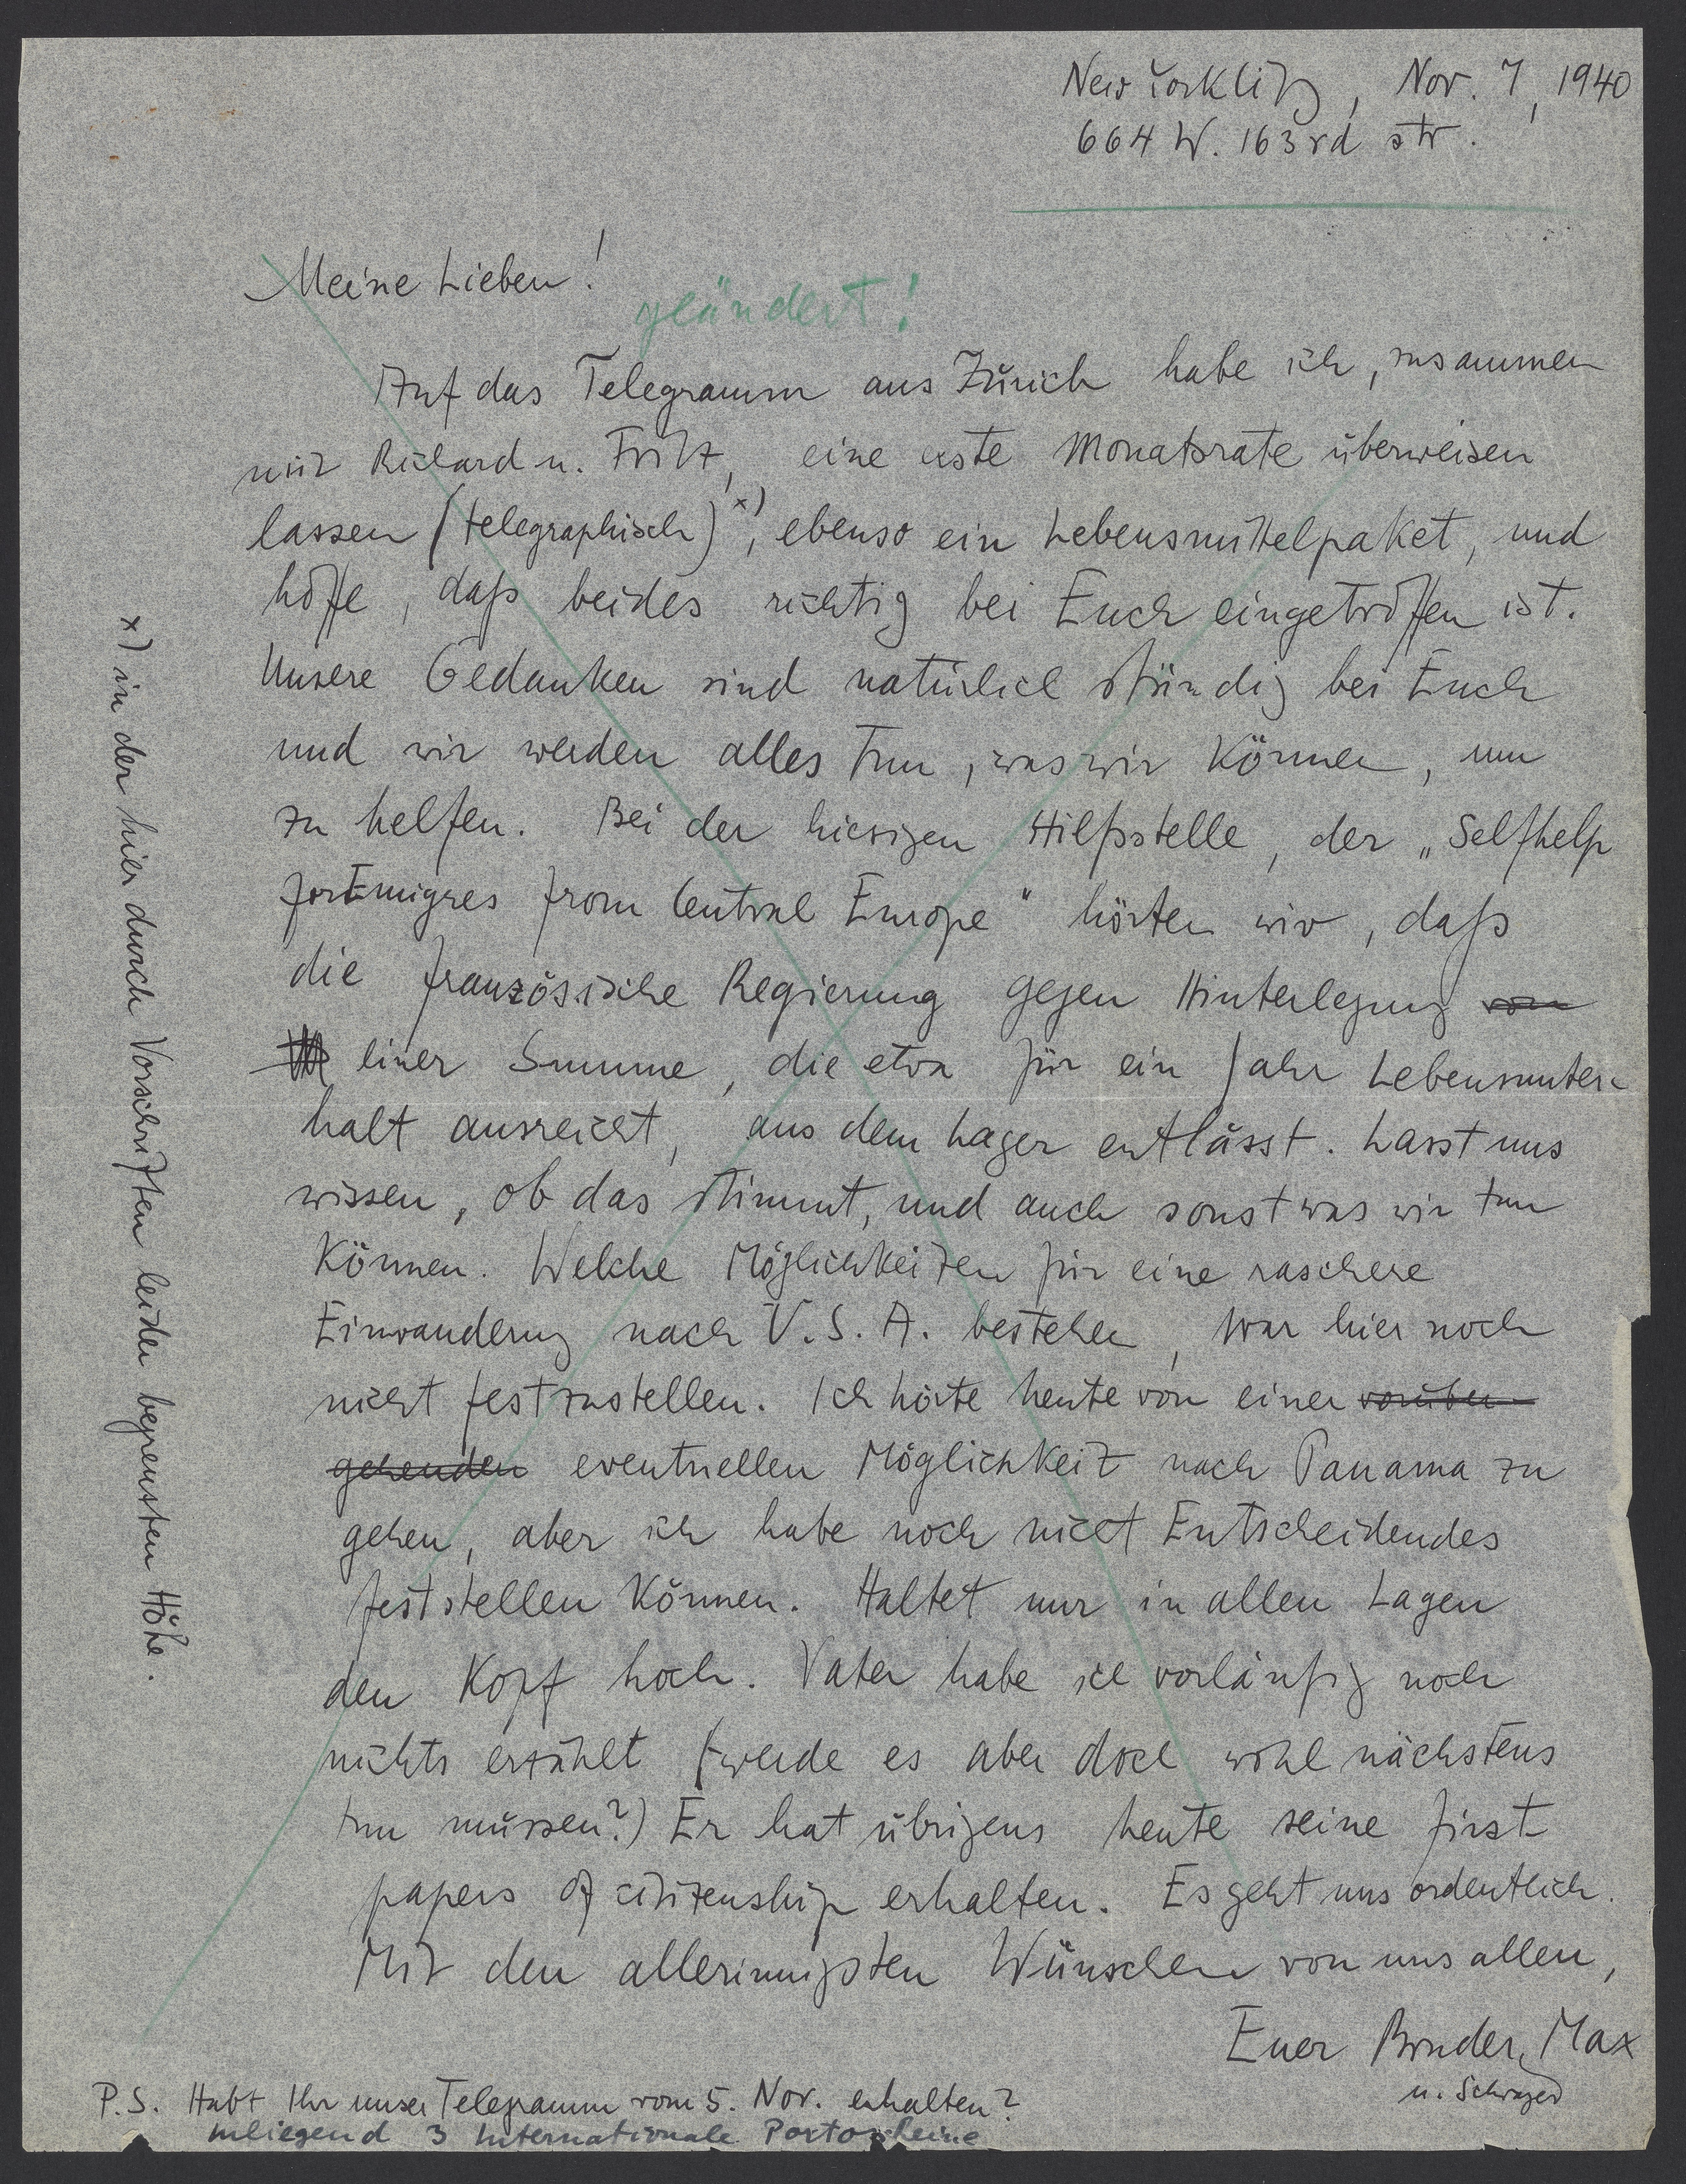 New York City, Nov. 7, 1940
664 W. 163rd str.
Meine Lieben!
geändert!
Auf das Telegramm aus Zürich habe ich, zusammen
mit Richard u. Fritz, eine erste Monatsrate überweisen
lassen (telegraphisch) x), ebenso ein Lebensmittelpaket, und
hoffe, daß beides richtig bei Euch eingetroffen ist.
Unsere Gedanken sind natürlich ständig bei Euch
und wir werden alles tun, was wir können, um
zu helfen. Bei der hiesigen Hilfsstelle, der „Selfhelp
for Emigres from Central Europe" hörten wir, daß
die französische Regierung gegen Hinterlegung von
einer Summe, die etwa für ein Jahr Lebensunter-
halt ausreicht, aus dem Lager entlässt. Lasst uns
wissen, ob das stimmt, und auch sonst was wir tun
können. Welche Möglichkeiten für eine raschere
Einwanderung nach U.S.A. bestehen, war hier noch
nicht festzustellen. Ich hörte heute von einer vorüber-
gehenden eventuellen Möglichkeit nach Panama zu
gehen, aber ich habe noch nicht Entscheidendes
feststellen können. Haltet nur in allen Lagen
den Kopf hoch. Vater habe ich vorläufig noch
nichts erzählt (werde es aber doch wohl nächstens
tun müssen?) Er hat übrigens heute seine first
papers of citizenship erhalten. Es geht uns ordentlich.
Mit den allerinnigsten Wünschen von uns allen,
Euer Bruder, Max
u. Schwager
P.S. Habt Ihr unser Telegramm vom 5. Nov. erhalten?
Inliegend 3 Internationale Portoscheine
x) in der hier durch Vorschriften leider begrensten Höhe.